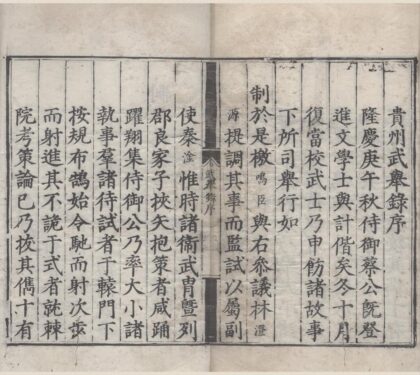 貴州武舉錄序
隆慶庚午秋侍御蔡公既登
進文學士與計偕矣冬十月
復當校武士乃申飭諸故事
下所司舉行如
制於是檄鳴臣與右參議林澄
源提調其事而監試以屬副
武舉錄序
使秦淦惟時諸衞武冑暨列
郡良家子挾矢抱策者咸踊
躍翔集侍御公乃率大小諸
執事羣諸待試者于轅門下
按規布鵠始令馳而射次步
而射進其不詭于式者試棘
院考策論已乃拔其儁十有